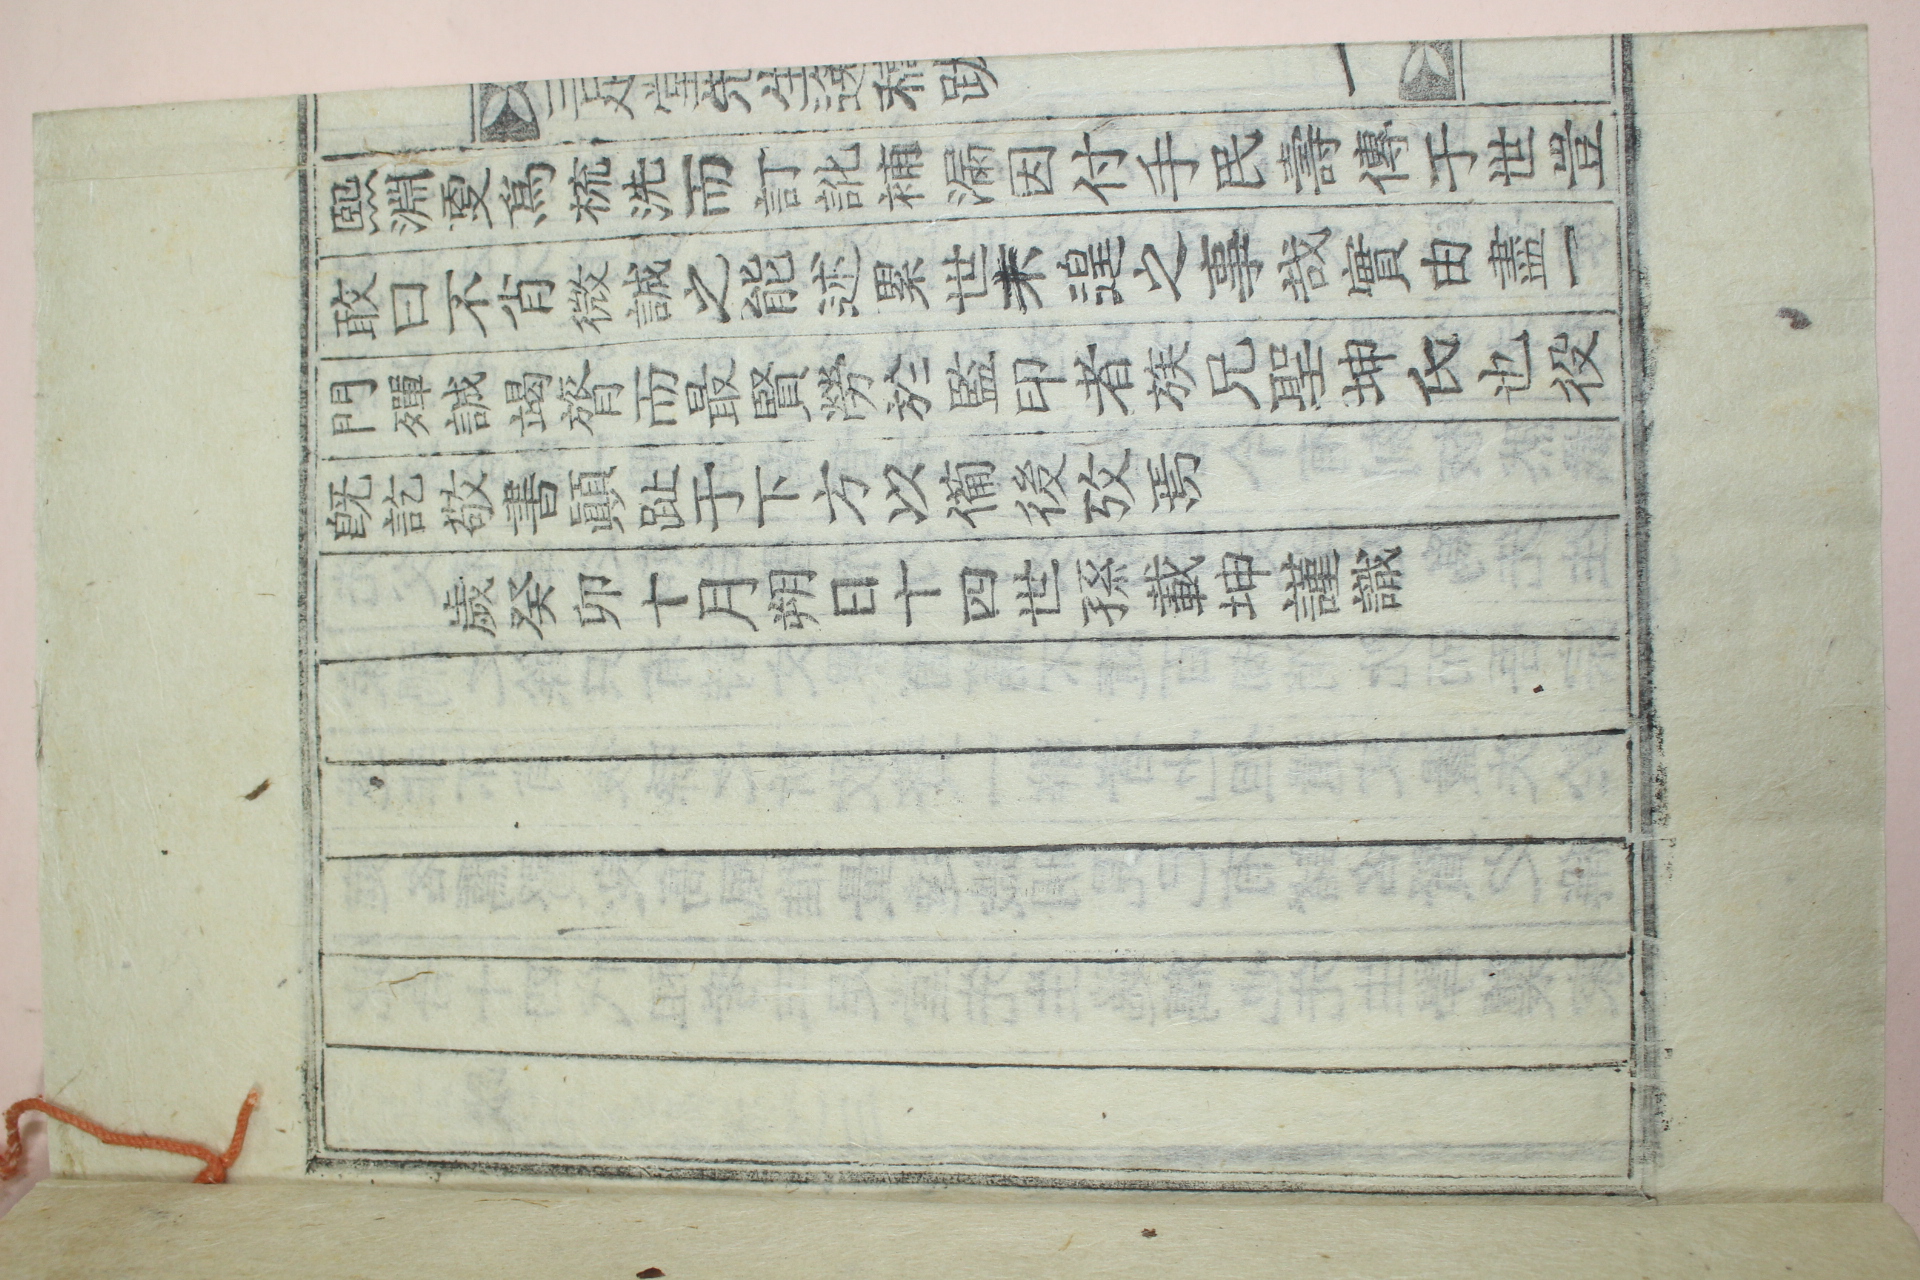 三足堂先生逸稿跋 一
熙淵更爲梳洗而訂訛補漏因付手民壽傳于世豈
敢曰不肖微誠之能述累世未遑之事哉實由盡一
門殫誠竭膂而最賢勞於監印者族兄聖坤氏也役
旣訖敬書顚趾于下方以備後攷焉
歲癸卯十月朔日十四世孫載坤謹識